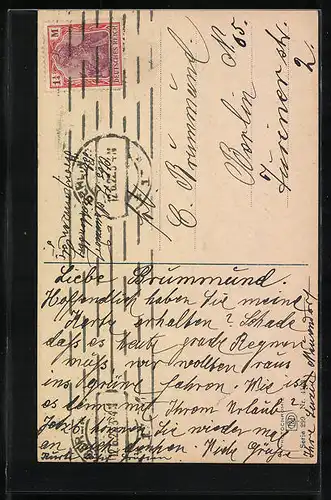 1¼ M
DEUTSCHES REICH
C. Brümmund.
Berlin N.
65.
Turinerstr.
2.
Liebe Brummund.
Hoffentlich haben Sie meine
Karte erhalten? Schade
daß es heute grade Regnen
muß wir wollten raus
ins grüne fahren. Wie ist
es denn mit Ihrem Urlaub?
Jetzt können Sie wieder mal
an mich denken. Viele Grüße
Ihre
Serie 299